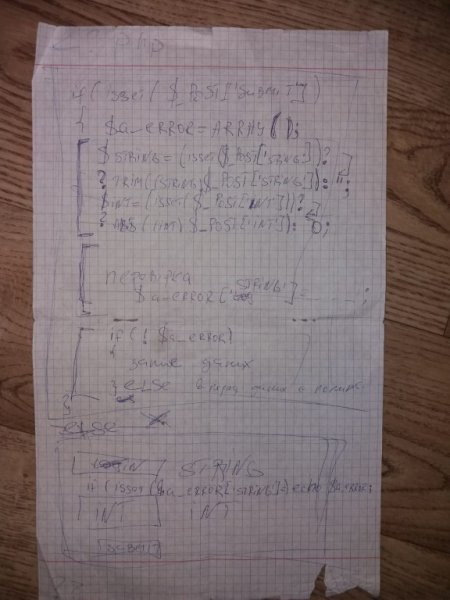 <? PHP
if (isset($_POST['Submit'])
{ $a_ERROR = ARRAY();
$STRING = (isset($_POST['STRING'])?
? TRIM((STRING)$_POST['STRING']): '';
$INT = (isset($_POST['INT']))?
? ABS((INT)$_POST['INT']): 0;
перевірка
$a_error['STRING'] = ;
if (! $a_ERROR)
{
запис даних
} ELSE
}
ELSE
STRING
if (isset($a_ERROR['STRING'])) echo $a_ERROR
INT INT
SUBMIT
?>